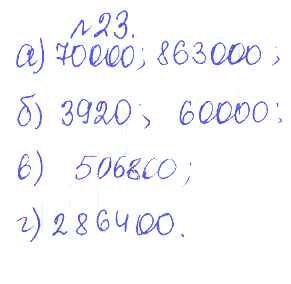 №23.
а) 70000; 863000;
б) 3920; 60000;
в) 506800;
г) 286400.